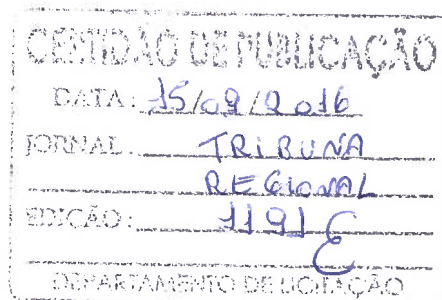 CERTIDÃO DE PUBLICAÇÃO
DATA: 15/09/2016
JORNAL: TRIBUNA
REGIONAL
EDIÇÃO: 1191
DEPARTAMENTO DE LICITAÇÃO